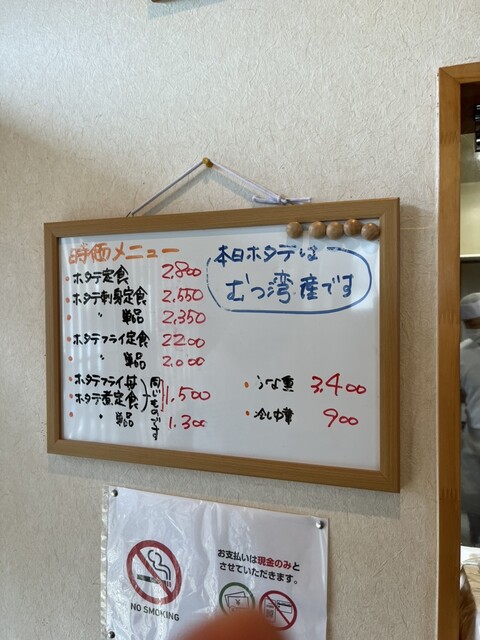 時価メニュー
・ホタテ定食 2,800
・ホタテ刺身定食 2,550
〃 単品 2,350
・ホタテフライ定食 2200
・〃 単品 2,000
・ホタテフライ丼
・ホタテ煮定食 1,500
同じものです
・〃 単品 1,300
本日ホタテは
むつ湾産です
・うな重 3,400
・冷し中華 900
NO SMOKING
お支払いは現金のみと
させていただきます。